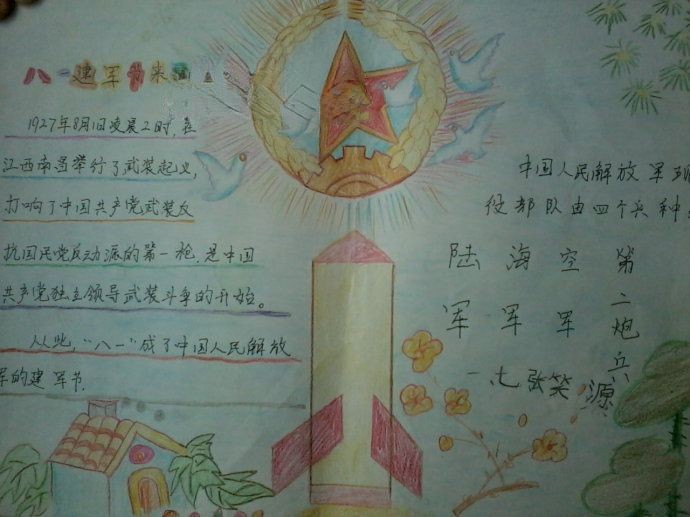 八一建军节来
1927年8月1日凌晨2时，在
江西南昌举行了武装起义，
打响了中国共产党武装反
抗国民党反动派的第一枪，是中国
共产党独立领导武装斗争的开始。
从此，“八一”成了中国人民解放
军的建军节．
中国人民解放军现
役部队由四个兵种
陆军
海军
空军
第二炮兵
一、七张笑源